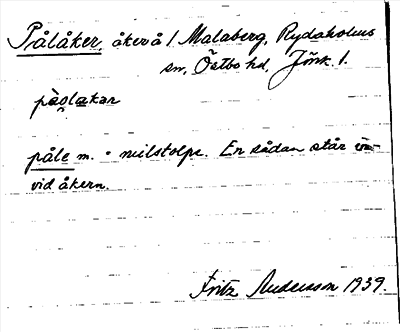 Pålåker, åker å l. Malaberg, Rydaholms
sn, Östbo hd, Jönk. l.
påolakar
påle m. = milstolpe. En sådan står
vid åkern.
Fritz Andersson 1939.